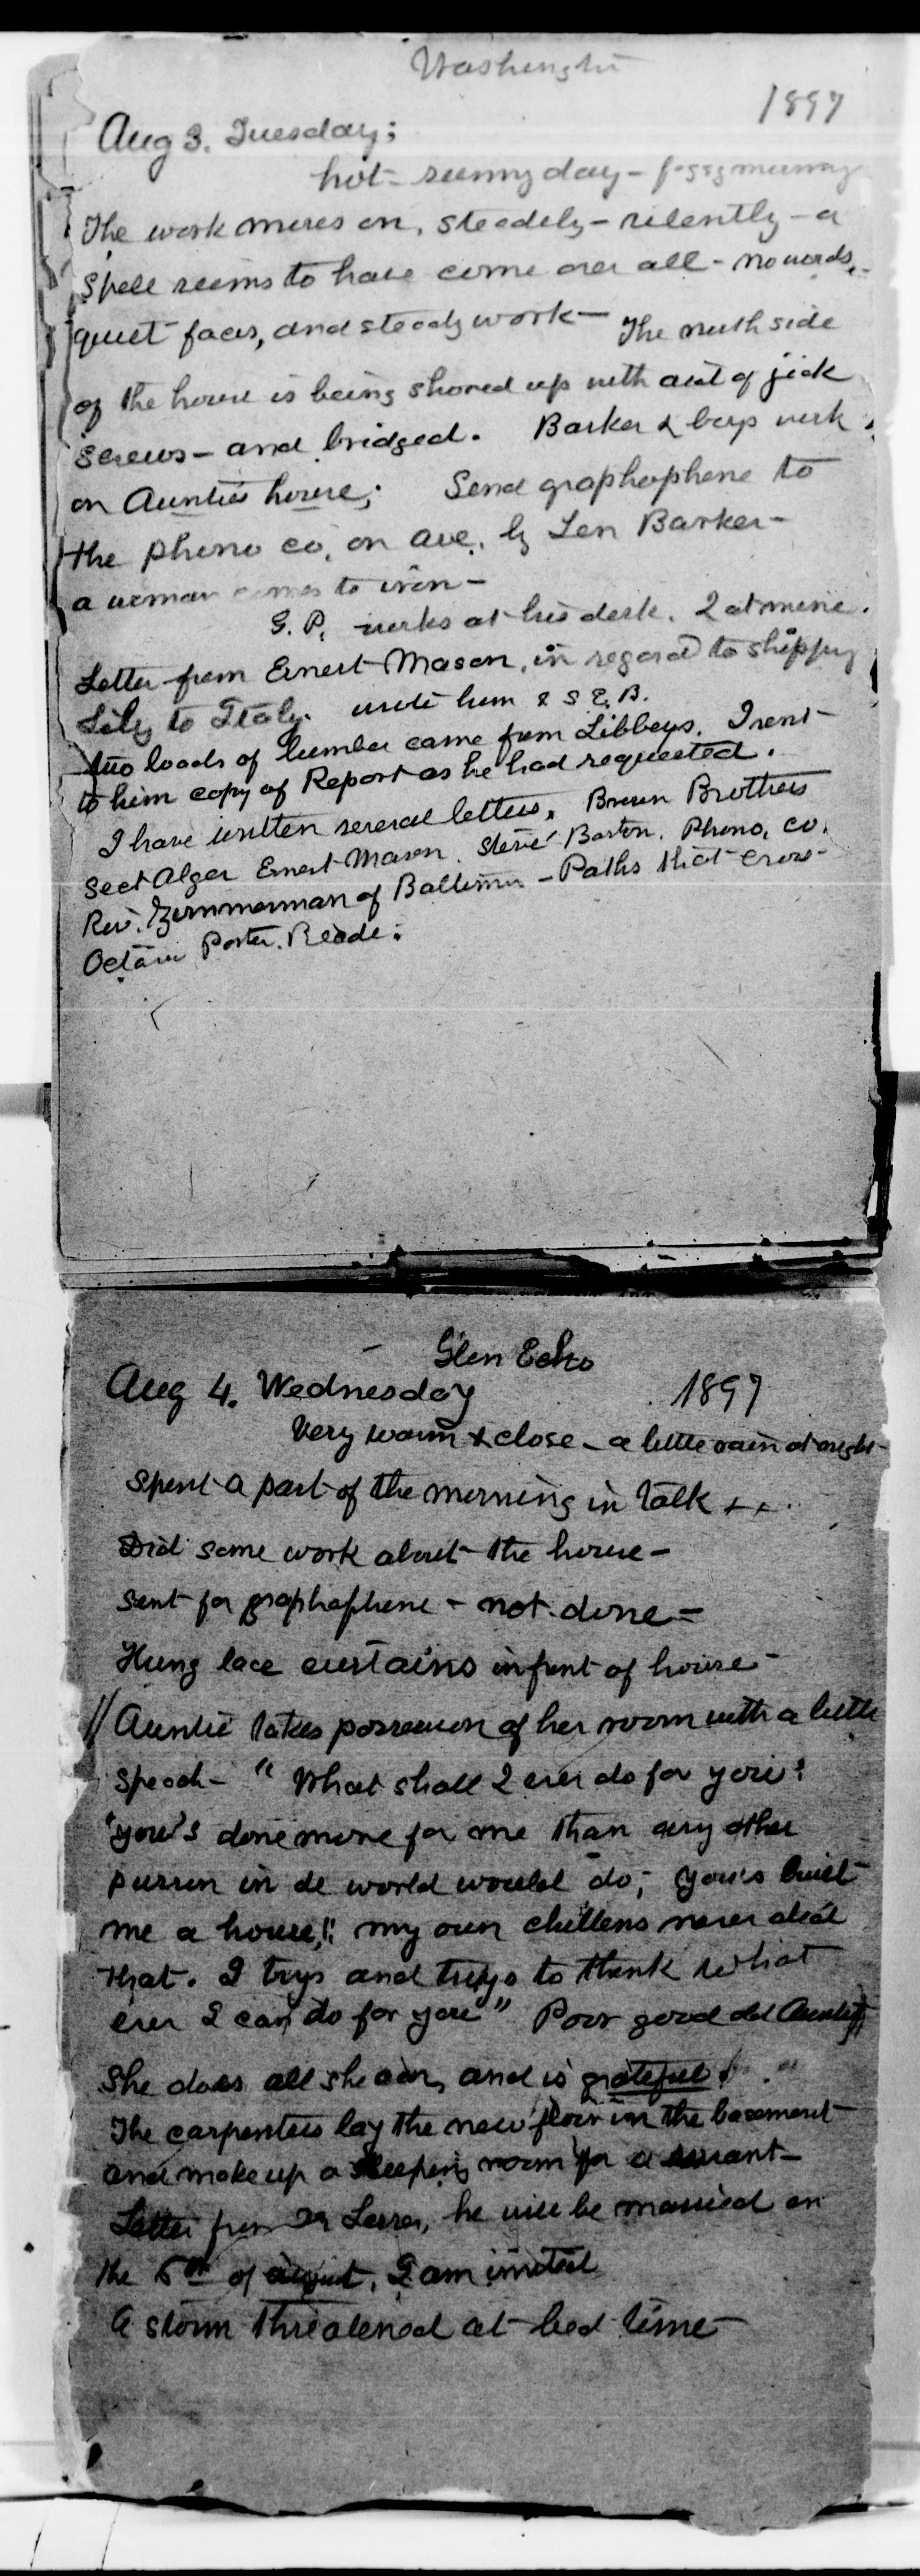 Washington
1897
Aug 3. Tuesday;
hot - sunny day - foggy morning
The work moves on, steadily - silently - a
spell seems to have come over all - no words,
quiet faces, and steady work - The north side
of the house is being shored up with aid of jick
screws - and bridged. Barker & boys work
on Aunties house; Send graphophone to
the phono co, on ave. by Len Barker -
a woman comes to iron -
G. P. works at his desk. I at mine.
Letter from Ernest Mason, in regard to shipping
Lily to Italy. wrote him & S E. B.
two loads of lumber came from Libbeys. I sent
to him copy of Report as he had requested.
I have written several letters. Brown Brothers
Sect Alger Ernest Mason. Steve Barton. Phono. co.
Rev. Zimmerman of Baltimore - Paths that cross -
Octavia Porter. Reade.
Glen Echo
Aug 4. Wednesday 1897
Very warm & close - a little rain at night -
Spent a part of the morning in talk + +.
Did some work about the house -
sent for graphophone - not done -
Hung lace curtains in front of house -
// Auntie takes possession of her room with a little
speech - " What shall I ever do for you?
"you's done more for me than any other
purson in de world would do; you's built
me a house,!! my own chillens never did
that. I trys and trys to think what
ever I can do for you" Poor good old Auntie,
She does all she can, and is grateful.
The carpenters lay the new floor in the basement
and make up a sleeping room for a servant -
Letter from Dr Lesser, he will be married on
the 5th of august, I am invited
A storm threatened at bed time -